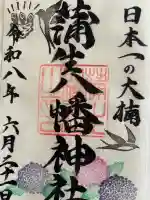 日本一の大楠
蒲生八幡神社
令和八年 六月二十一日